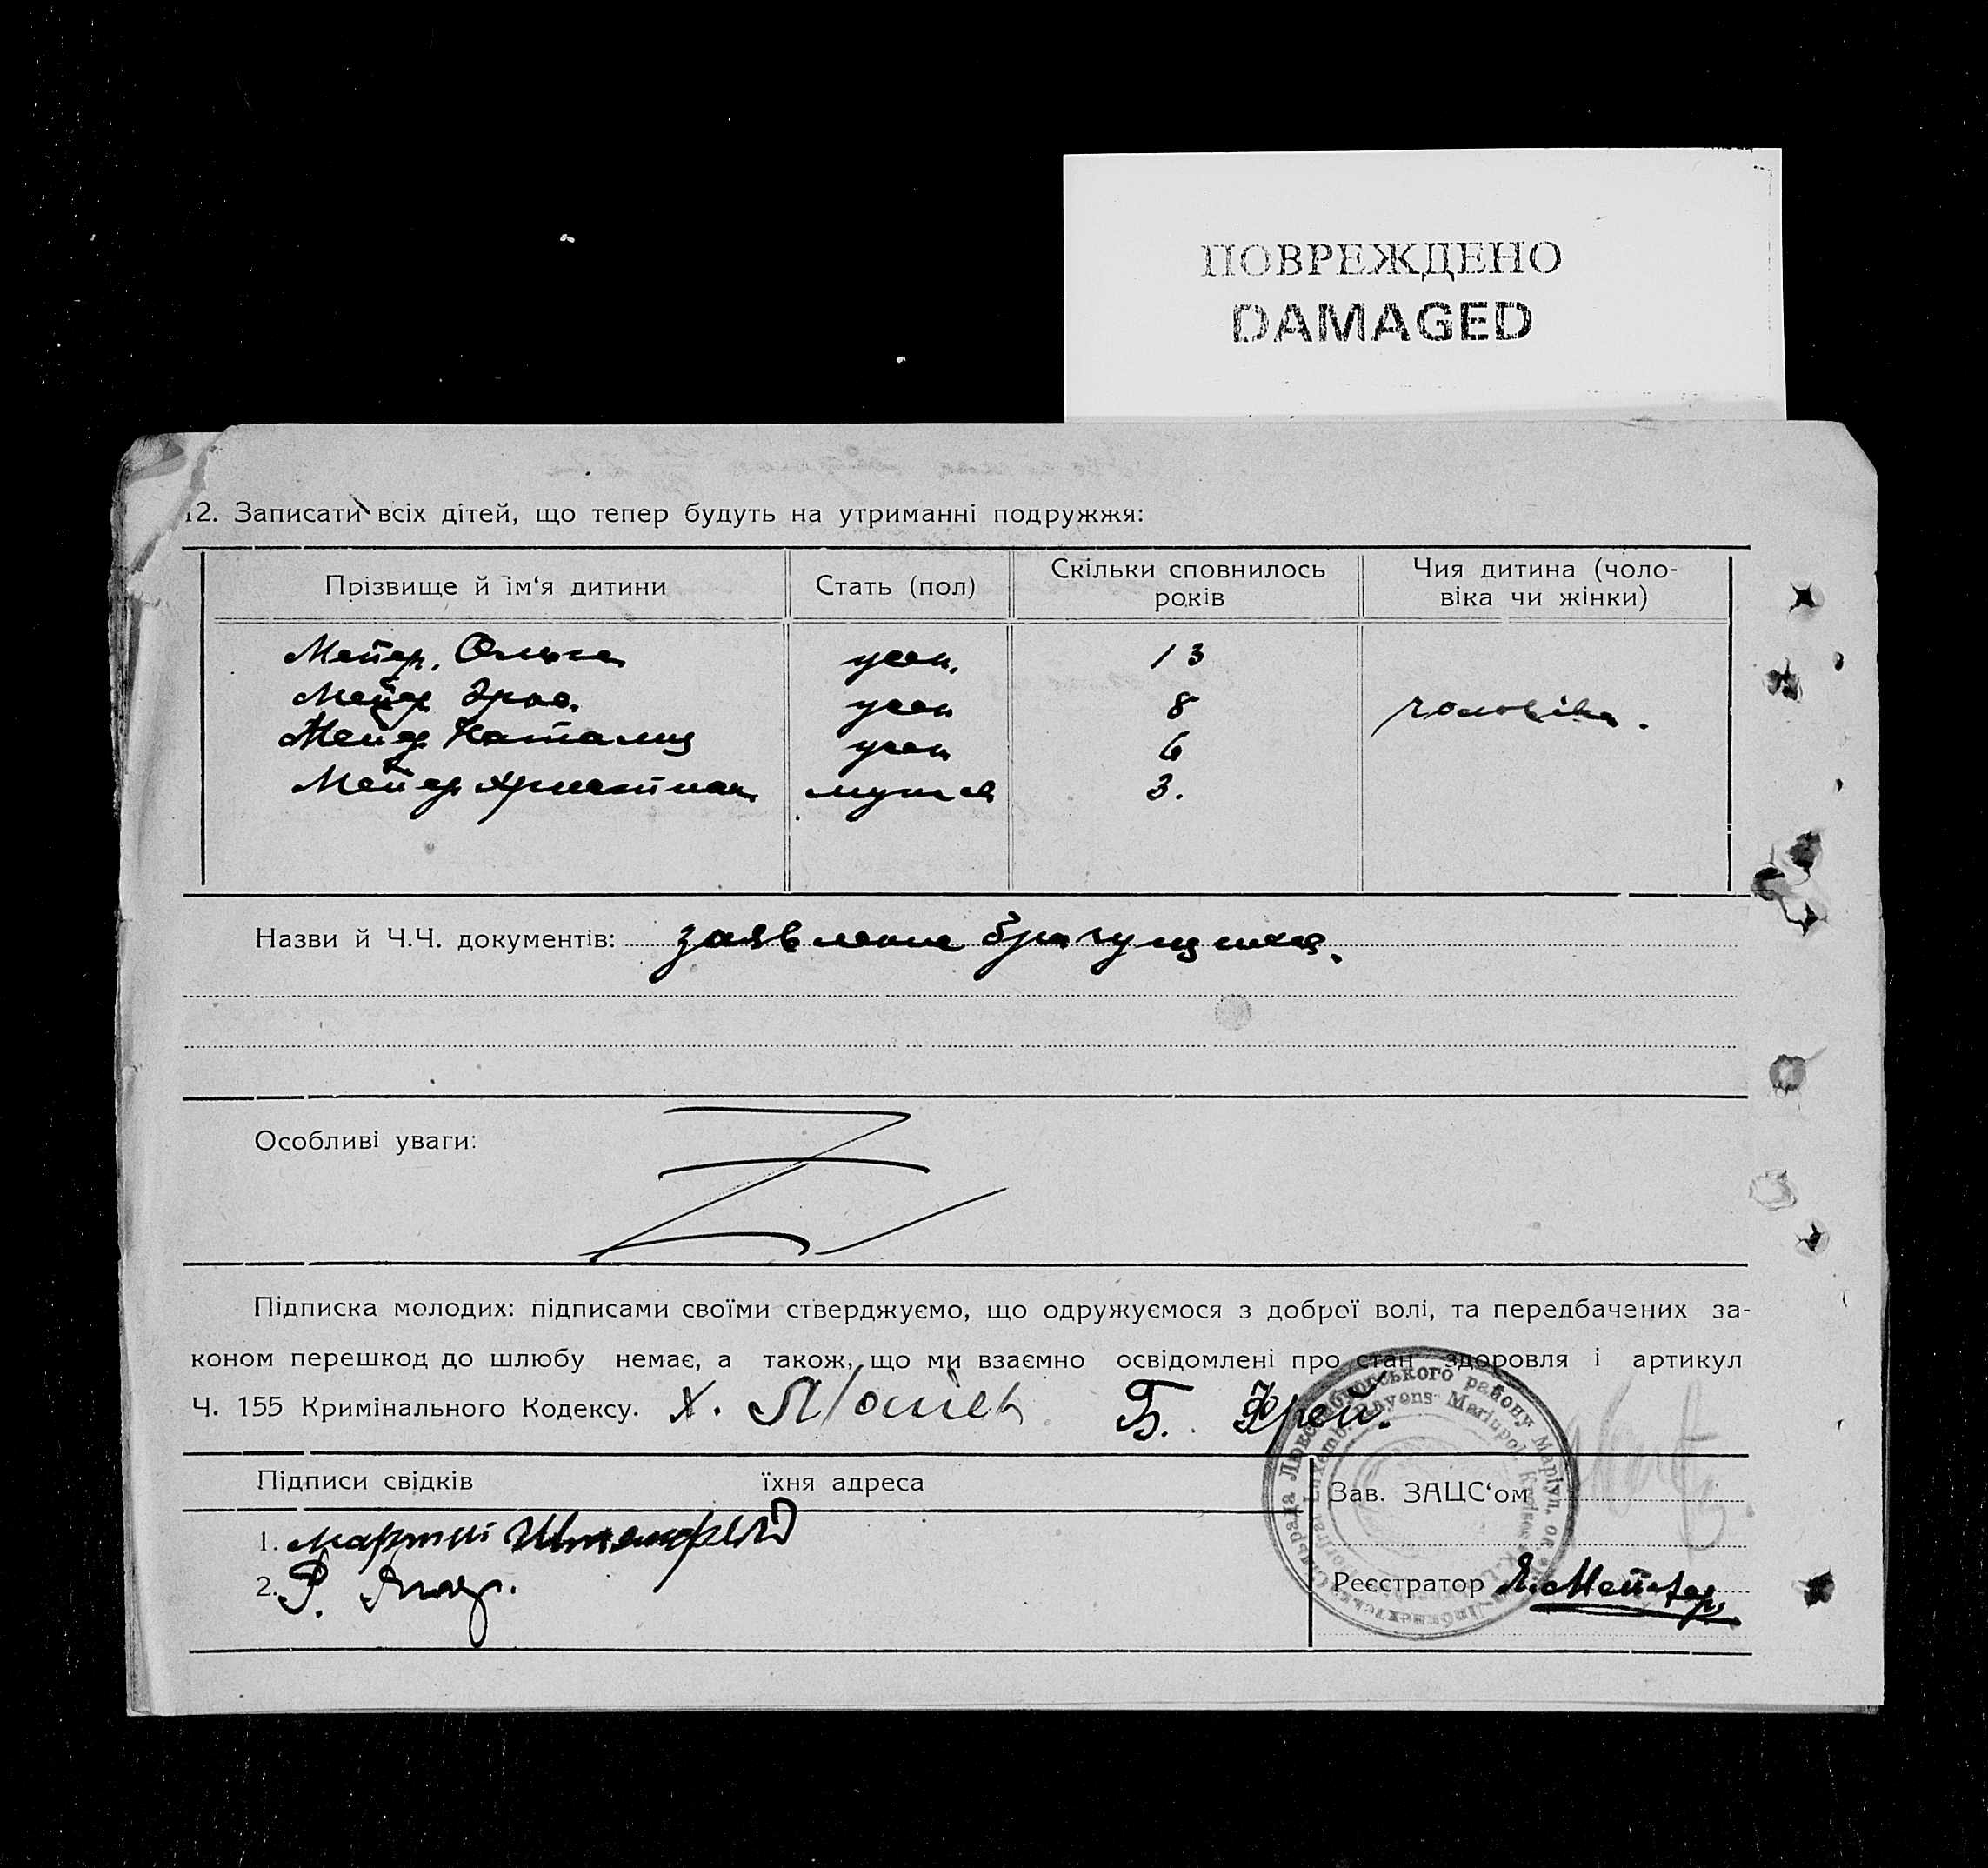 ПОВРЕЖДЕНО
DAMAGED
12. Записати всіх дітей, що тепер будуть на утриманні подружжя:
Прізвище й ім‘я дитини Стать (пол) Скільки сповнилось років Чия дитина (чоловіка чи жінки)
Мейер, Ольга жен. 13
Мейер жен 8 чоловіка.
Мейер Наталия жен 6
Мейер Христиан мужск 3.
Назви й Ч.Ч. документів: заявление брачущихся.
Особливі уваги:
Підписка молодих: підписами своїми стверджуємо, що одружуємося з доброї волі, та передбачених за-
коном перешкод до шлюбу немає, а також, що ми взаємно освідомлені про стан здоровля і артикул
Ч. 155 Кримінального Кодексу. Х. Б. Фрей.
Підписи свідків їхня адреса
Зав. ЗАЦС‘ом
1.
2. Р.
Реєстратор
району Маріуп. ок.
Rayens Mariupol